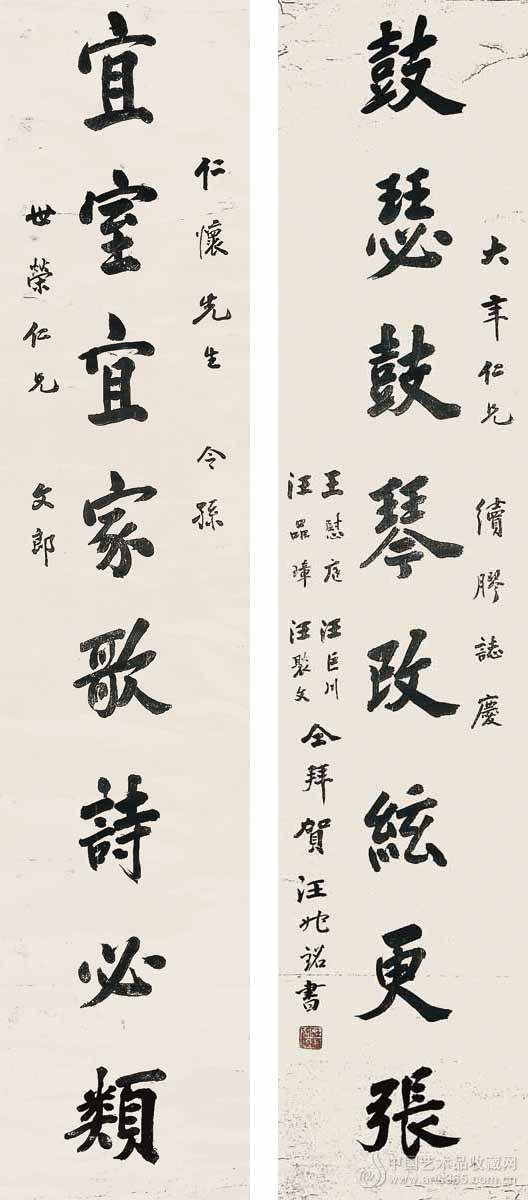 大年仁兄 續膠誌慶
鼓瑟鼓琴改絃更張
王慰庭 汪巨川
汪器璋 汪聚文
仝拜賀 汪兆銘書
仁懷先生 令孫
宜室宜家歌詩必類
世榮仁兄 文郎
中国艺术品收藏网